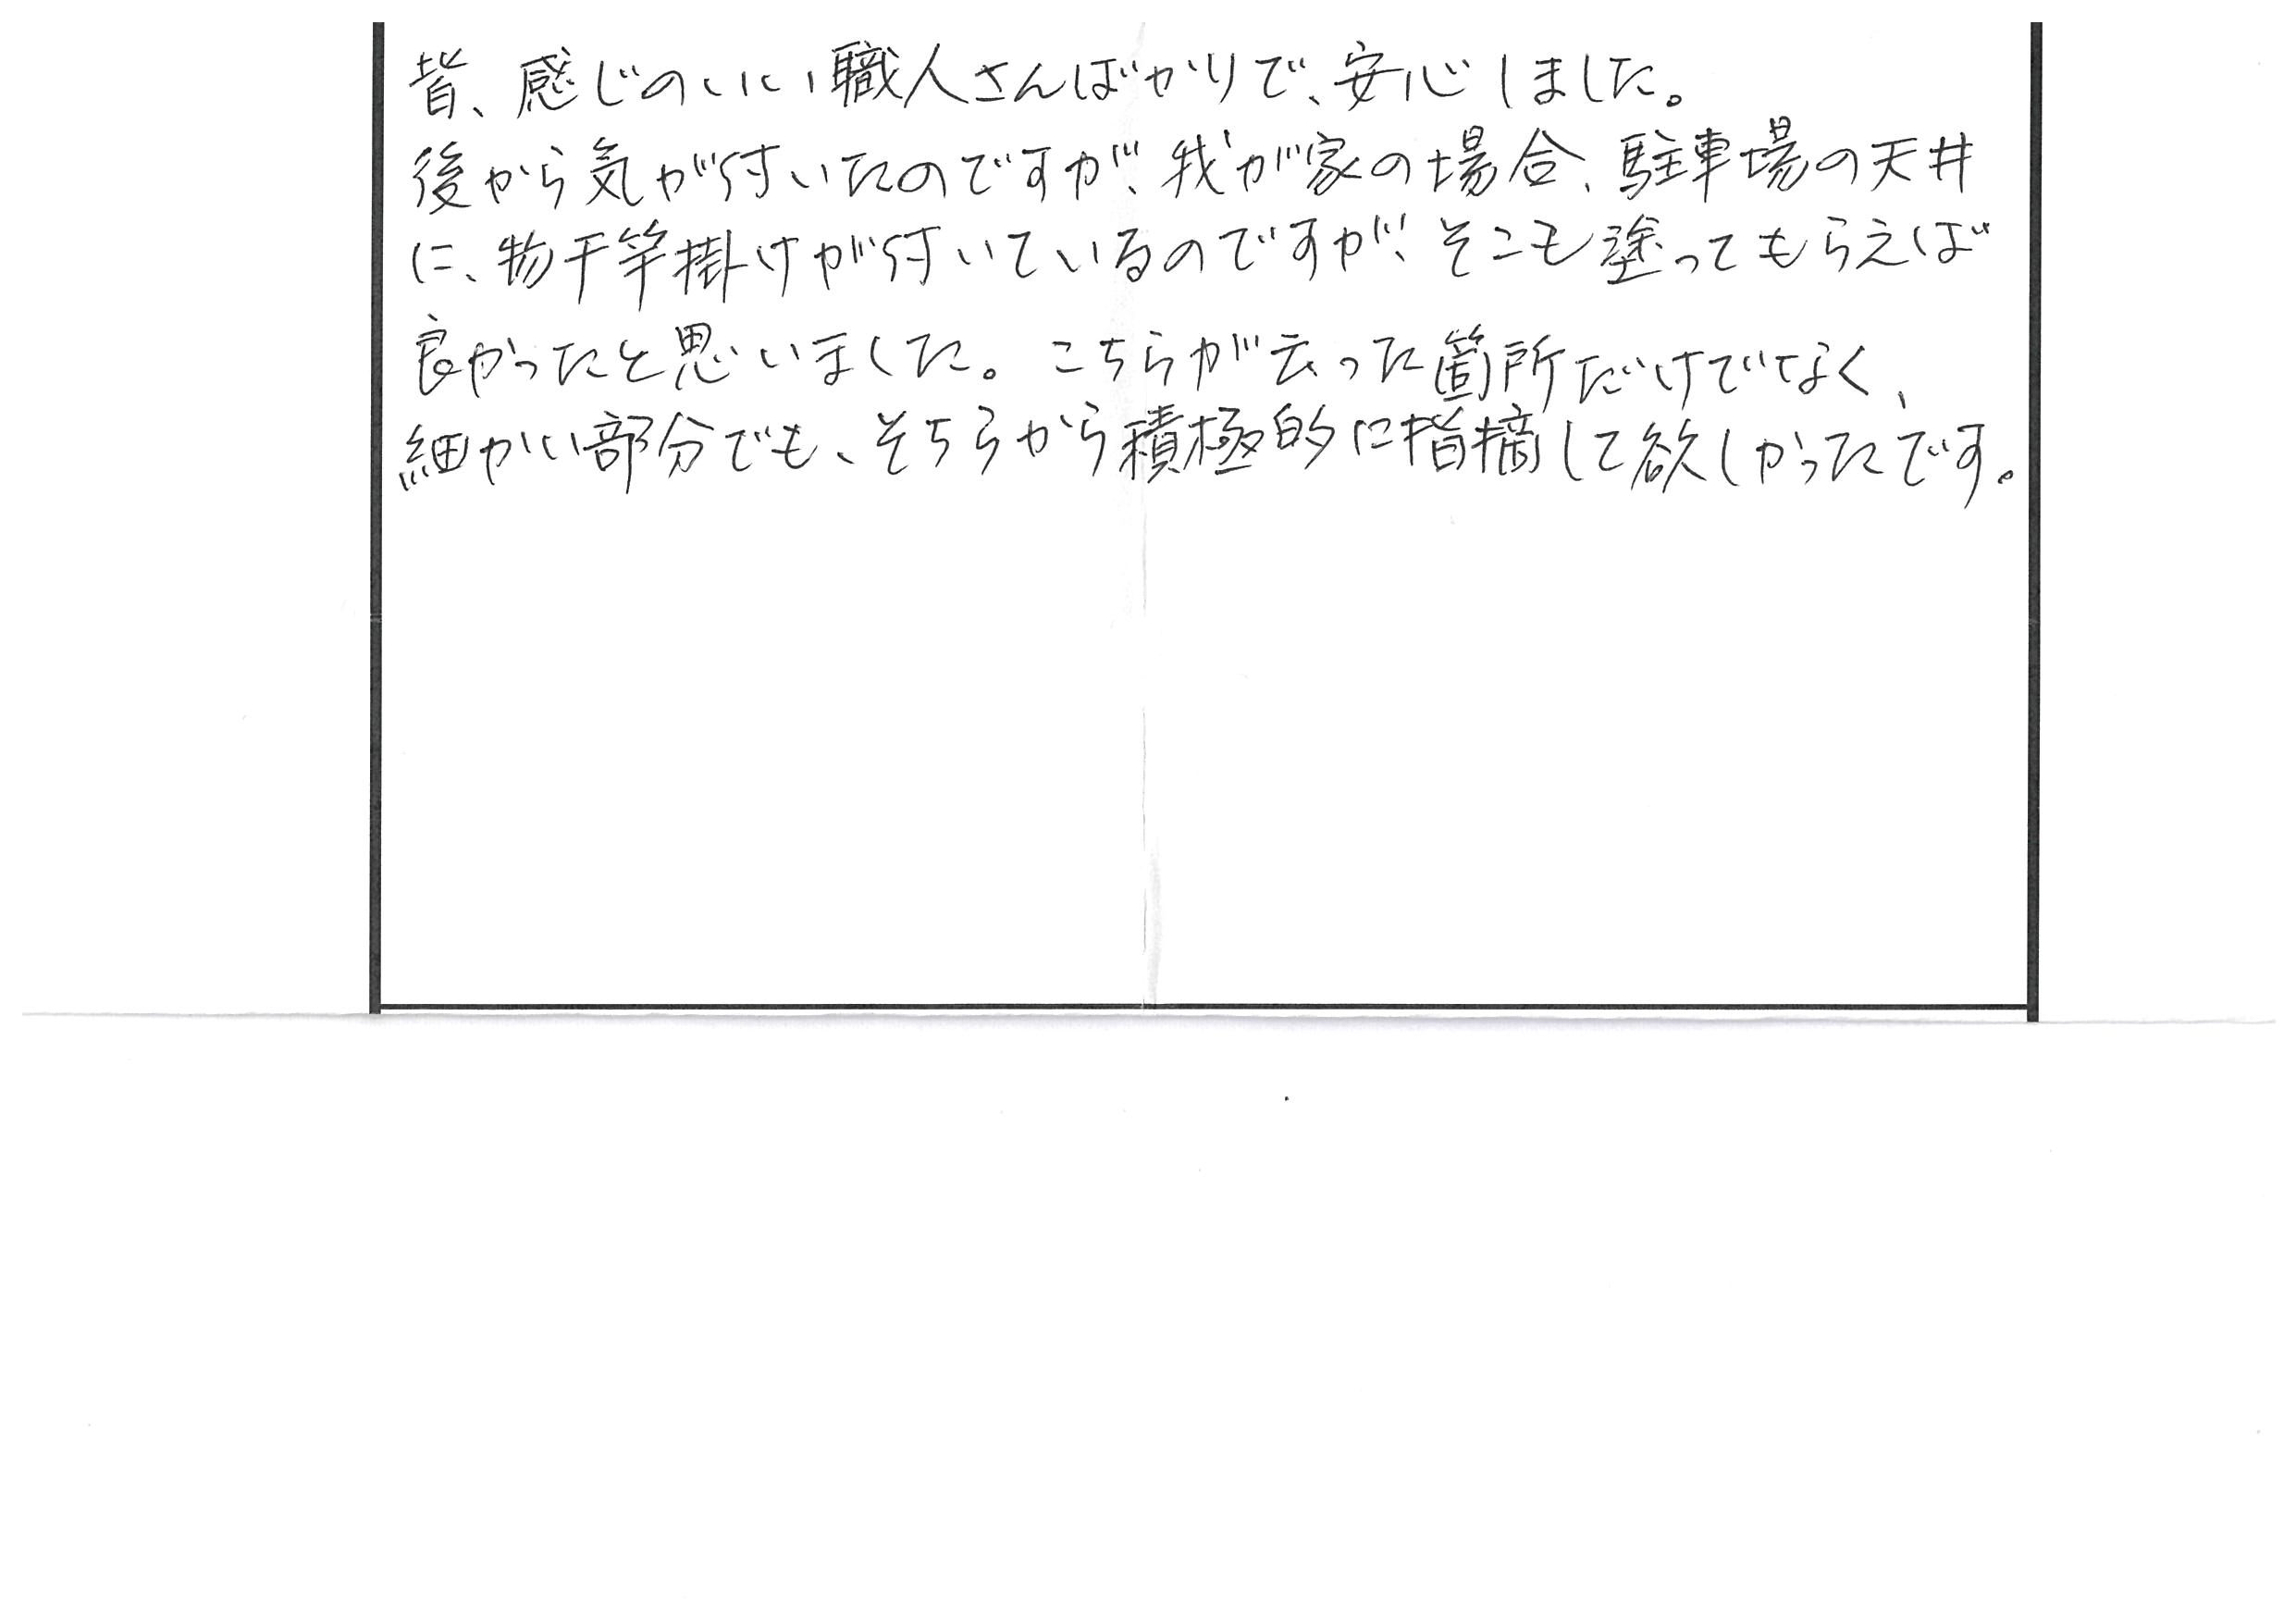 皆、感じのいい職人さんばかりで、安心しました。
後から気が付いたのですが、我が家の場合、駐車場の天井
に、物干竿掛けが付いているのですが、そこも塗ってもらえば
良かったと思いました。こちらが云った箇所だけでなく、
細かい部分でも、そちらから積極的に指摘して欲しかったです。